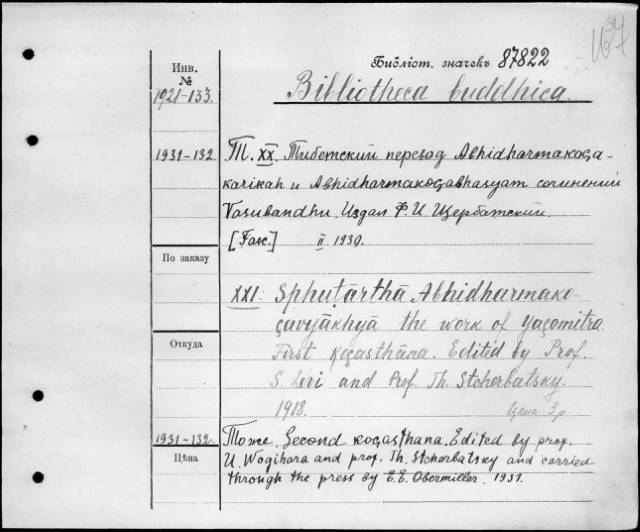 Библіот. значекъ 87822
Инв. №
1921-133.
Bibliotheca buddhica.
1931-132. Т. XX. Тибетский перевод Abhidharmakoça-
karikah и Abhidharmakoçabhasyam сочинений
Vasubandhu. Издал Ф. И. Щербатский.
[Fasc.] II 1930.
По заказу
XXI. Sphuṭārthā Abhidharmako-
çavyākhyā the work of Yaçomitra.
First Koçasthāna. Edited by Prof.
Откуда
S. Levi and Prof. Th. Stcherbatsky.
1918. Цена 3р
1931-132. Тоже. Second koçasthana. Edited by prof.
Цѣна
U. Wogihara and prof. Th. Stcherbatsky and carried
through the press by E.E. Obermiller. 1931.